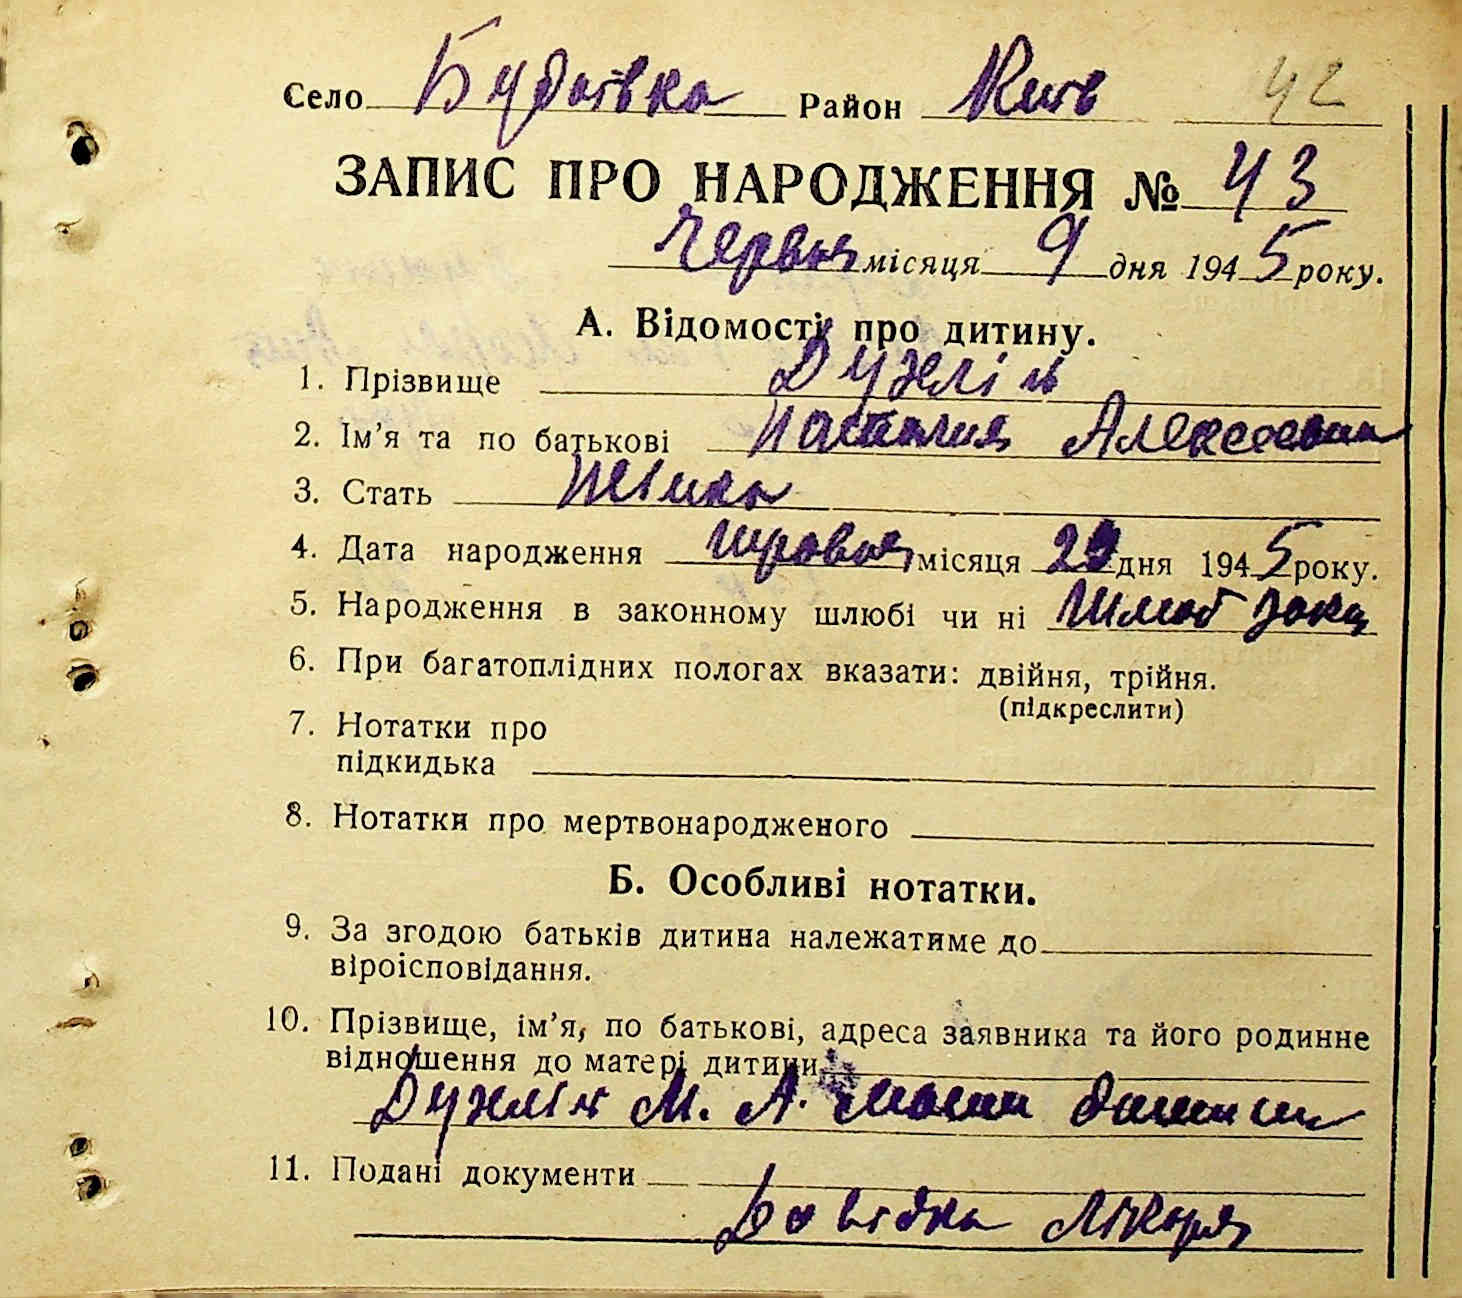 Село Будаївка Район Київ 42
ЗАПИС ПРО НАРОДЖЕННЯ № 43
Червня місяця 9 дня 1945 року.
А. Відомості про дитину.
1. Прізвище Дужлій
2. Ім'я та по батькові Наталия Алексеевна
3. Стать Жіноча
4. Дата народження місяця дня 1945 року.
5. Народження в законному шлюбі чи ні Шлюб закон
6. При багатоплідних пологах вказати: двійня, трійня.
(підкреслити)
7. Нотатки про
підкидька
8. Нотатки про мертвонародженого
Б. Особливі нотатки.
9. За згодою батьків дитина належатиме до
віроісповідання.
10. Прізвище, ім'я, по батькові, адреса заявника та його родинне
відношення до матері дитини
М. А. мати дитини
11. Подані документи
Довідка лікаря